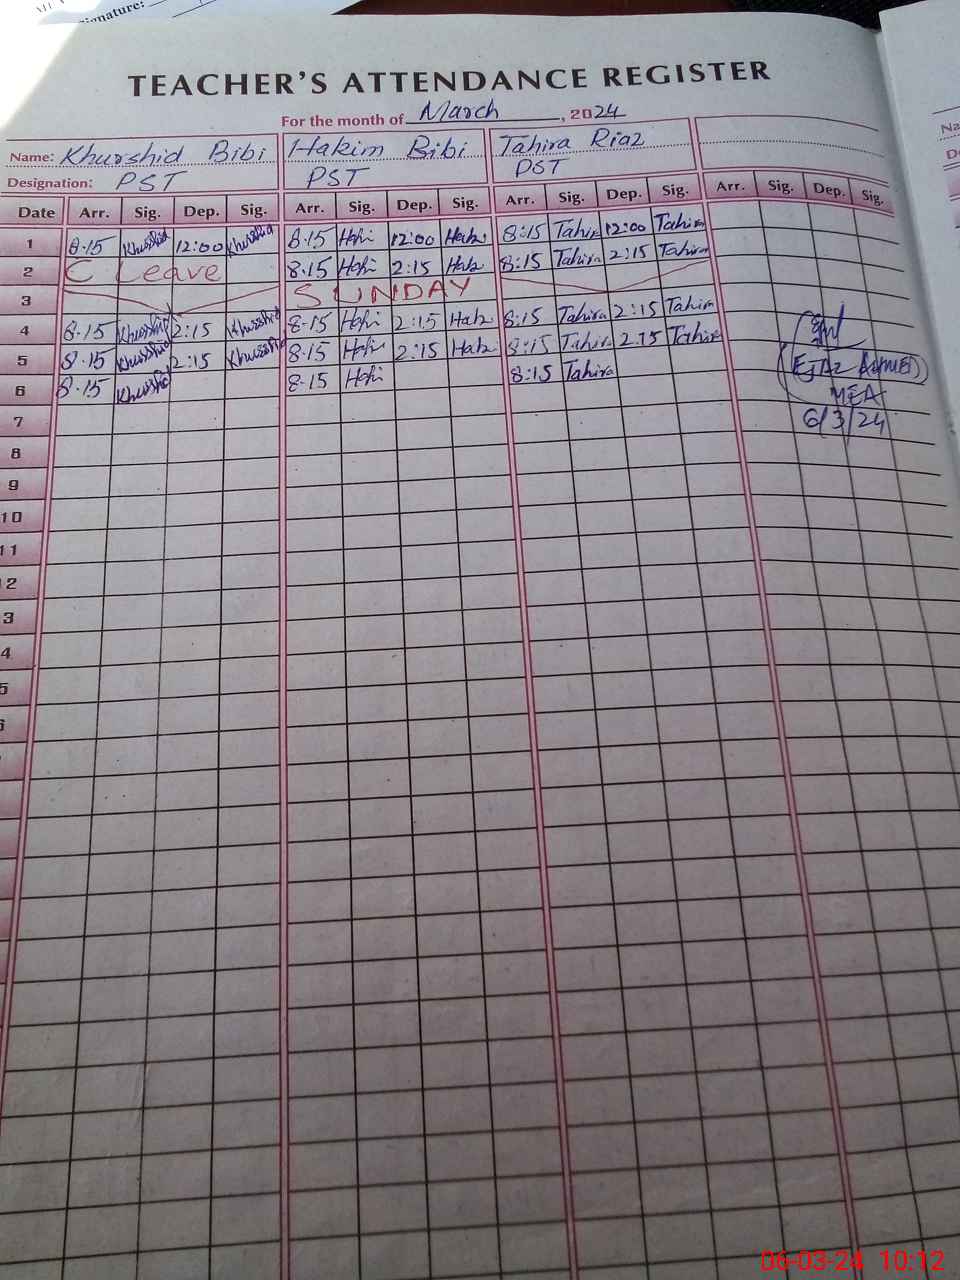 Signature:
TEACHER'S ATTENDANCE REGISTER
For the month of March, 2024
Name: Khurshid Bibi Hakim Bibi Tahira Riaz
Designation: PST PST PST
Date Arr. Sig. Dep. Sig. Arr. Sig. Dep. Sig. Arr. Sig. Dep. Sig. Arr. Sig. Dep. Sig.
1 8.15 Khurshid 12:00 Khurshid 8.15 12:00 8:15 Tahira 12:00 Tahira
2 C Leave 8.15 2:15 8:15 Tahira 2:15 Tahira
3 SUNDAY
4 8.15 Khurshid 2:15 Khurshid 8.15 2:15 8:15 Tahira 2:15 Tahira
5 8.15 Khurshid 2:15 Khurshid 8.15 2:15 8:15 Tahira 2:15 Tahira
6 8.15 Khurshid 8.15 8:15 Tahira
(EJAZ AHMED)
MEA
7 6/3/24
8
9
10
11
12
3
4
5
6
06-03-24 10:12